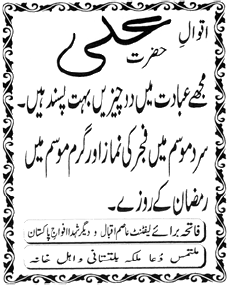 اقوالِ
حضرت علی
مجھے عبادت میں دو چیزیں بہت پسند ہیں۔
سرد موسم میں فجر کی نماز اور گرم موسم میں
رمضان کے روزے۔
فاتحہ برائے لیفٹننٹ عاصم اقبال و دیگر شہدا افواجِ پاکستان
ملتمسِ دُعا ملکہ بلتستانی و اہلِ خانہ